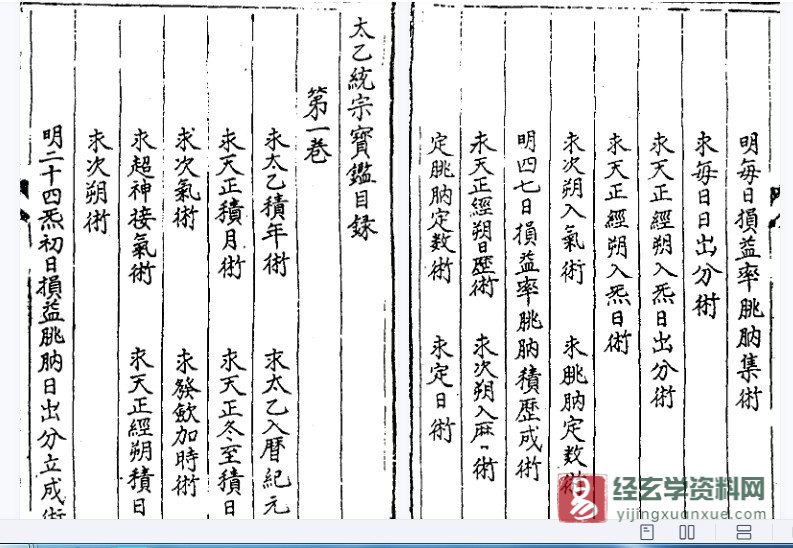 太乙統宗寶鑑目録
第一卷
求太乙積年術　求太乙入曆紀元
求天正積月術　求天正冬至積日
求次氣術　求發歛加時術
求超神接氣術　求天正經朔積日
求次朔術
明二十四炁初日損益朓朒日出分立成術
明每日損益率朓朒集術
求每日日出分術
求天正經朔入炁日出分術
求天正經朔入炁日術
求次朔入氣術　求朓朒定数術
明四七日損益率朓朒積歷成術
求天正經朔日歷術　求次朔入術
定朓朒定数術　求定日術
易
经玄学资料网
yijingxuanxue.com